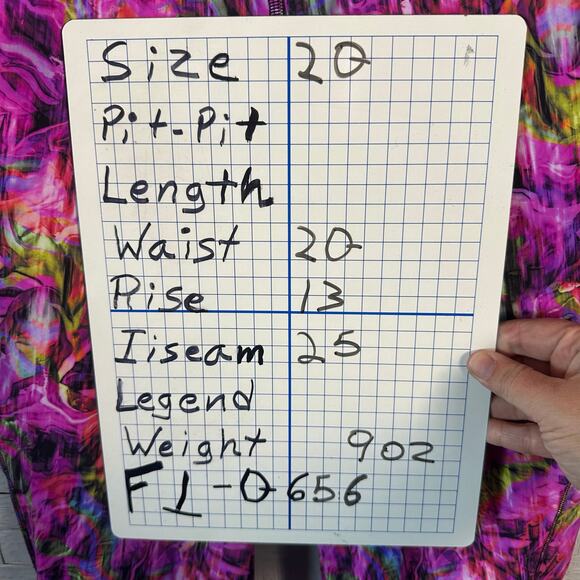 Size 20
Pit-Pit
Length
Waist 20
Rise 13
Iiseam 25
Legend
Weight 9oz
F1-0656